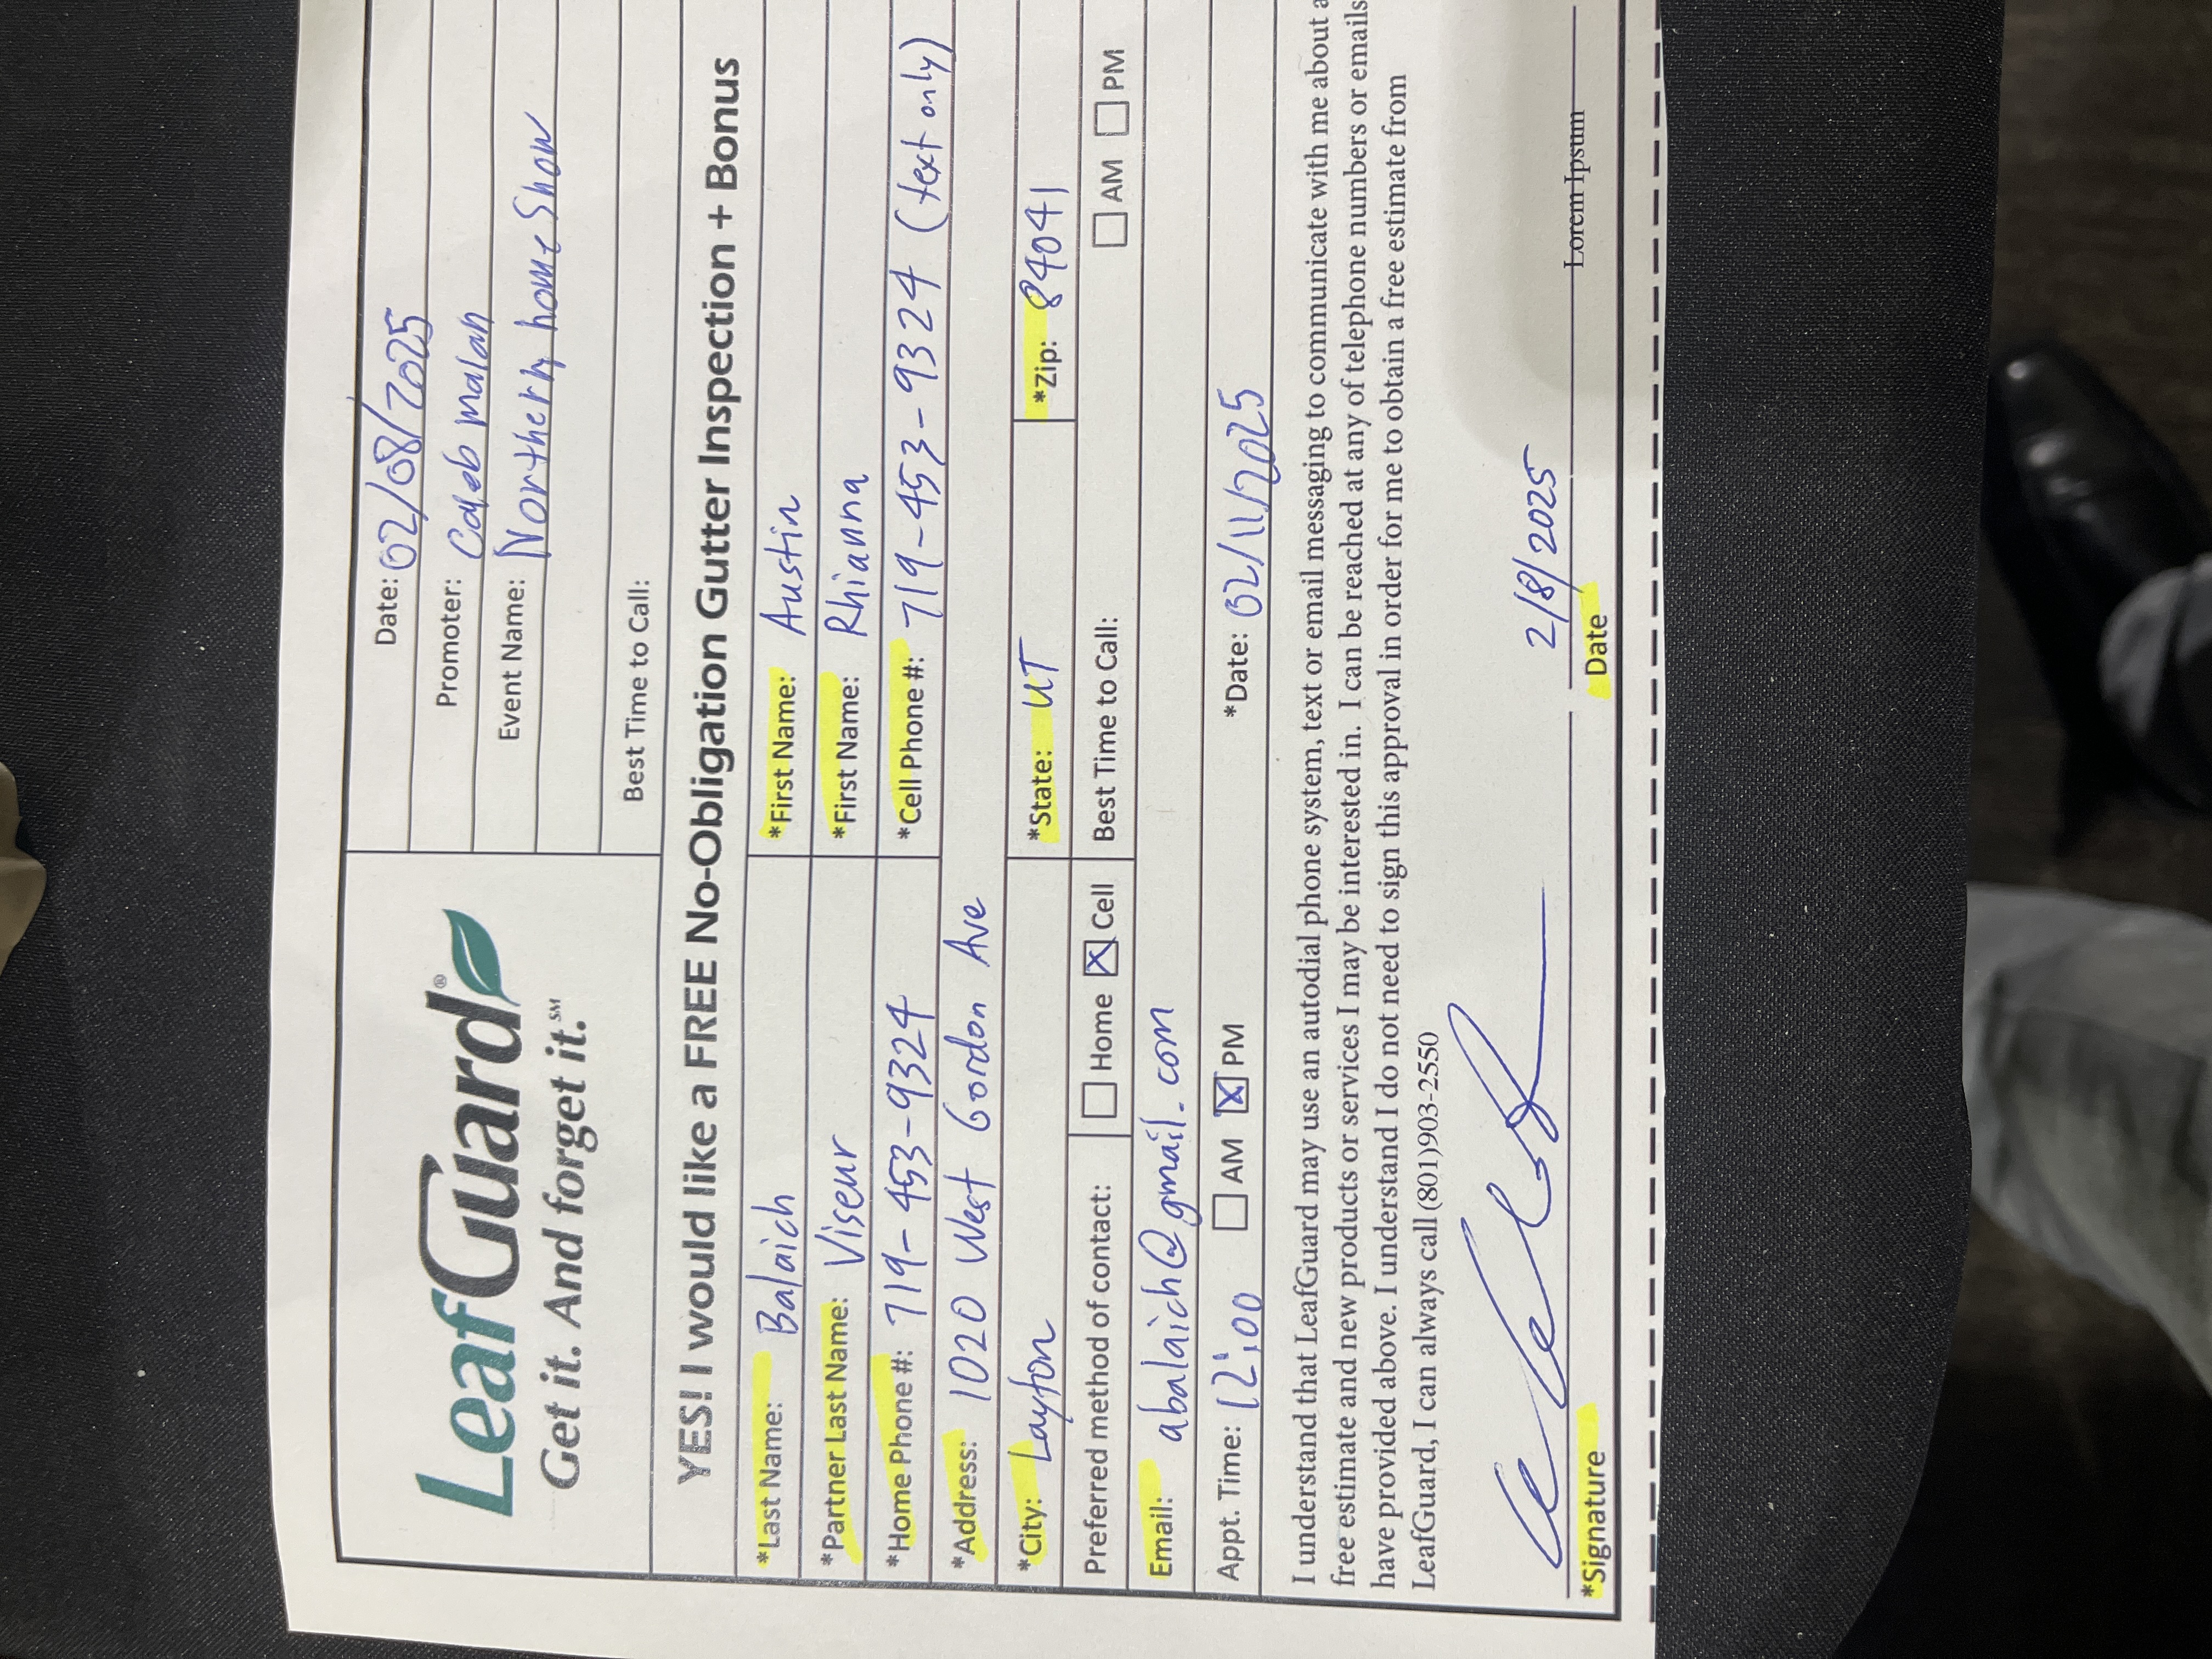 LeafGuard®
Get it. And forget it.℠
Date: 02/08/2025
Promoter: Caleb Malan
Event Name: Northern home Show
Best Time to Call:
YES! I would like a FREE No-Obligation Gutter Inspection + Bonus
*Last Name: Balaich *First Name: Austin
*Partner Last Name: Viseur *First Name: Rhianna
*Home Phone #: 719-453-9324 *Cell Phone #: 719-453-9324 (text only)
*Address: 1020 West Gordon Ave
*City: Layton *State: UT *Zip: 84041
Preferred method of contact: ☐ Home ☒ Cell Best Time to Call: ☐ AM ☐ PM
Email: abalaich@gmail.com
Appt. Time: 12:00 ☐ AM ☒ PM *Date: 02/11/2025
I understand that LeafGuard may use an autodial phone system, text or email messaging to communicate with me about a
free estimate and new products or services I may be interested in. I can be reached at any of telephone numbers or emails
have provided above. I understand I do not need to sign this approval in order for me to obtain a free estimate from
LeafGuard, I can always call (801)903-2550
2/8/2025
Lorem Ipsum
*Signature Date